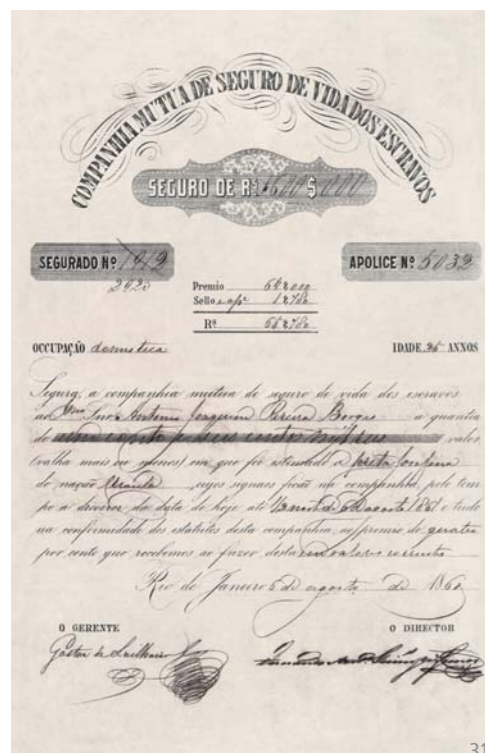 COMPANHIA MUTUA DE SEGURO DE VIDA DOS ESCRAVOS
SEGURO DE Rs 1600 $ 000
SEGURADO Nº 1919 APOLICE Nº 5032
2923
Premio 64 $ 000
Sello e ap.
Rs
OCCUPAÇÃO domestica IDADE 25 ANNOS
Segura, a companhia mutua de seguro de vida dos escravos
ao Antonio Joaquim Pereira Borges a quantia
de um conto e seis centos mil reis valor
(valha mais ou menos) em que foi estimado a preta Josefina
de nação cujos signaes ficão na companhia, pelo tem
po a decorrer da data de hoje até de agosto 1861 e tudo
na conformidade dos estatutos desta companhia, ao premio de quatro
por cento que recebemos ao fazer desta
Rio de Janeiro 6 de agosto de 1860
O GERENTE O DIRECTOR
31